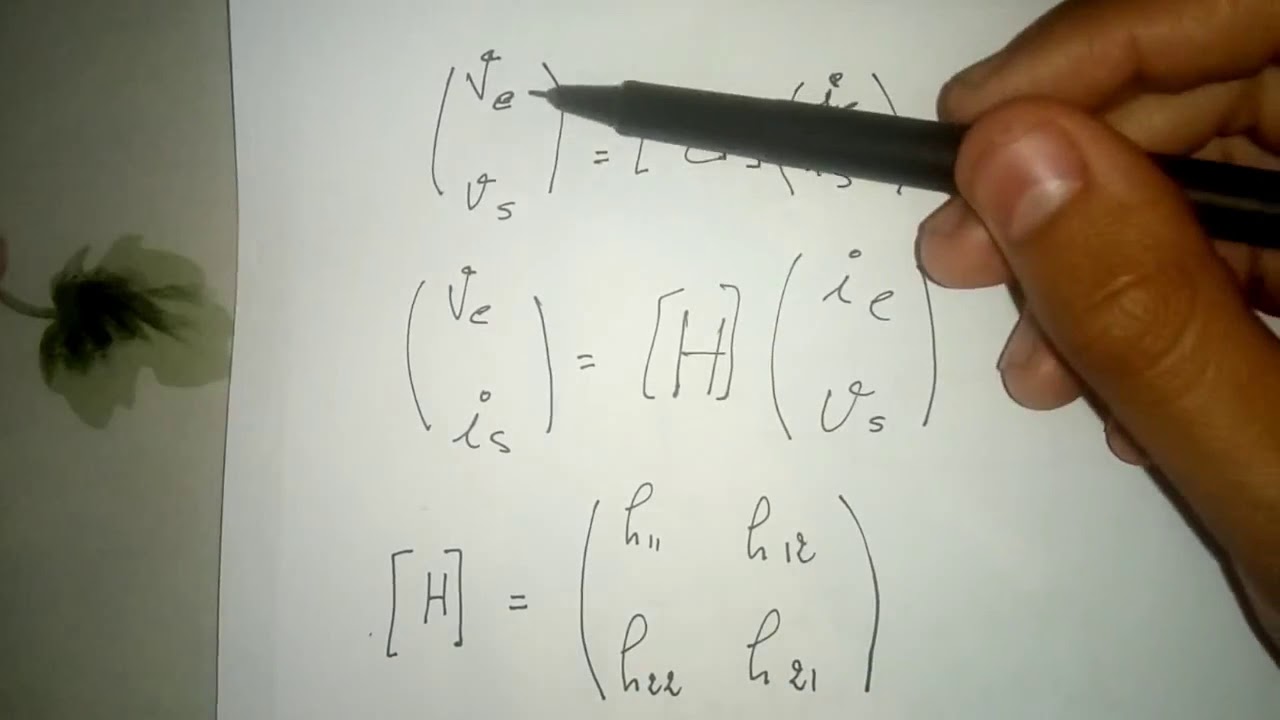 (Ve
vs) = [ ] (ie
is)
(Ve
is) = [H] (ie
vs)
[H] = (h11 h12
h22 h21)